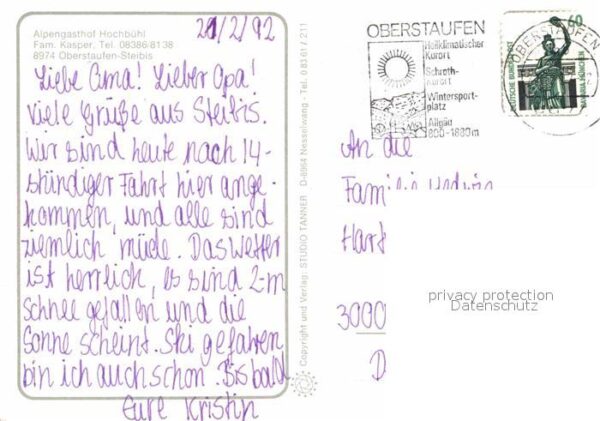 Alpengasthof Hochbühl
Fam. Kasper, Tel. 08386/8138
8974 Oberstaufen-Steibis
21/2/92
Liebe Oma! Lieber Opa!
Viele Grüße aus Steibis.
Wir sind heute nach 14-
stündiger Fahrt hier ange-
kommen, und alle sind
ziemlich müde. Das Wetter
ist herrlich, es sind 2-m
Schnee gefallen und die
Sonne scheint. Ski gefahren
bin ich auch schon. Bis bald
Eure Kristin
Copyright und Verlag: STUDIO TANNER D-8964 Nesselwang · Tel. 08361/211
OBERSTAUFEN
Heilklimatischer
Kurort
Schroth-
kurort
Wintersport-
platz
Allgäu
800-1880m
OBERSTAUFEN
60
DEUTSCHE BUNDESPOST
BAVARIA MÜNCHEN
An die
Familie Hedwig
Hart
3000
D
privacy protection
Datenschutz